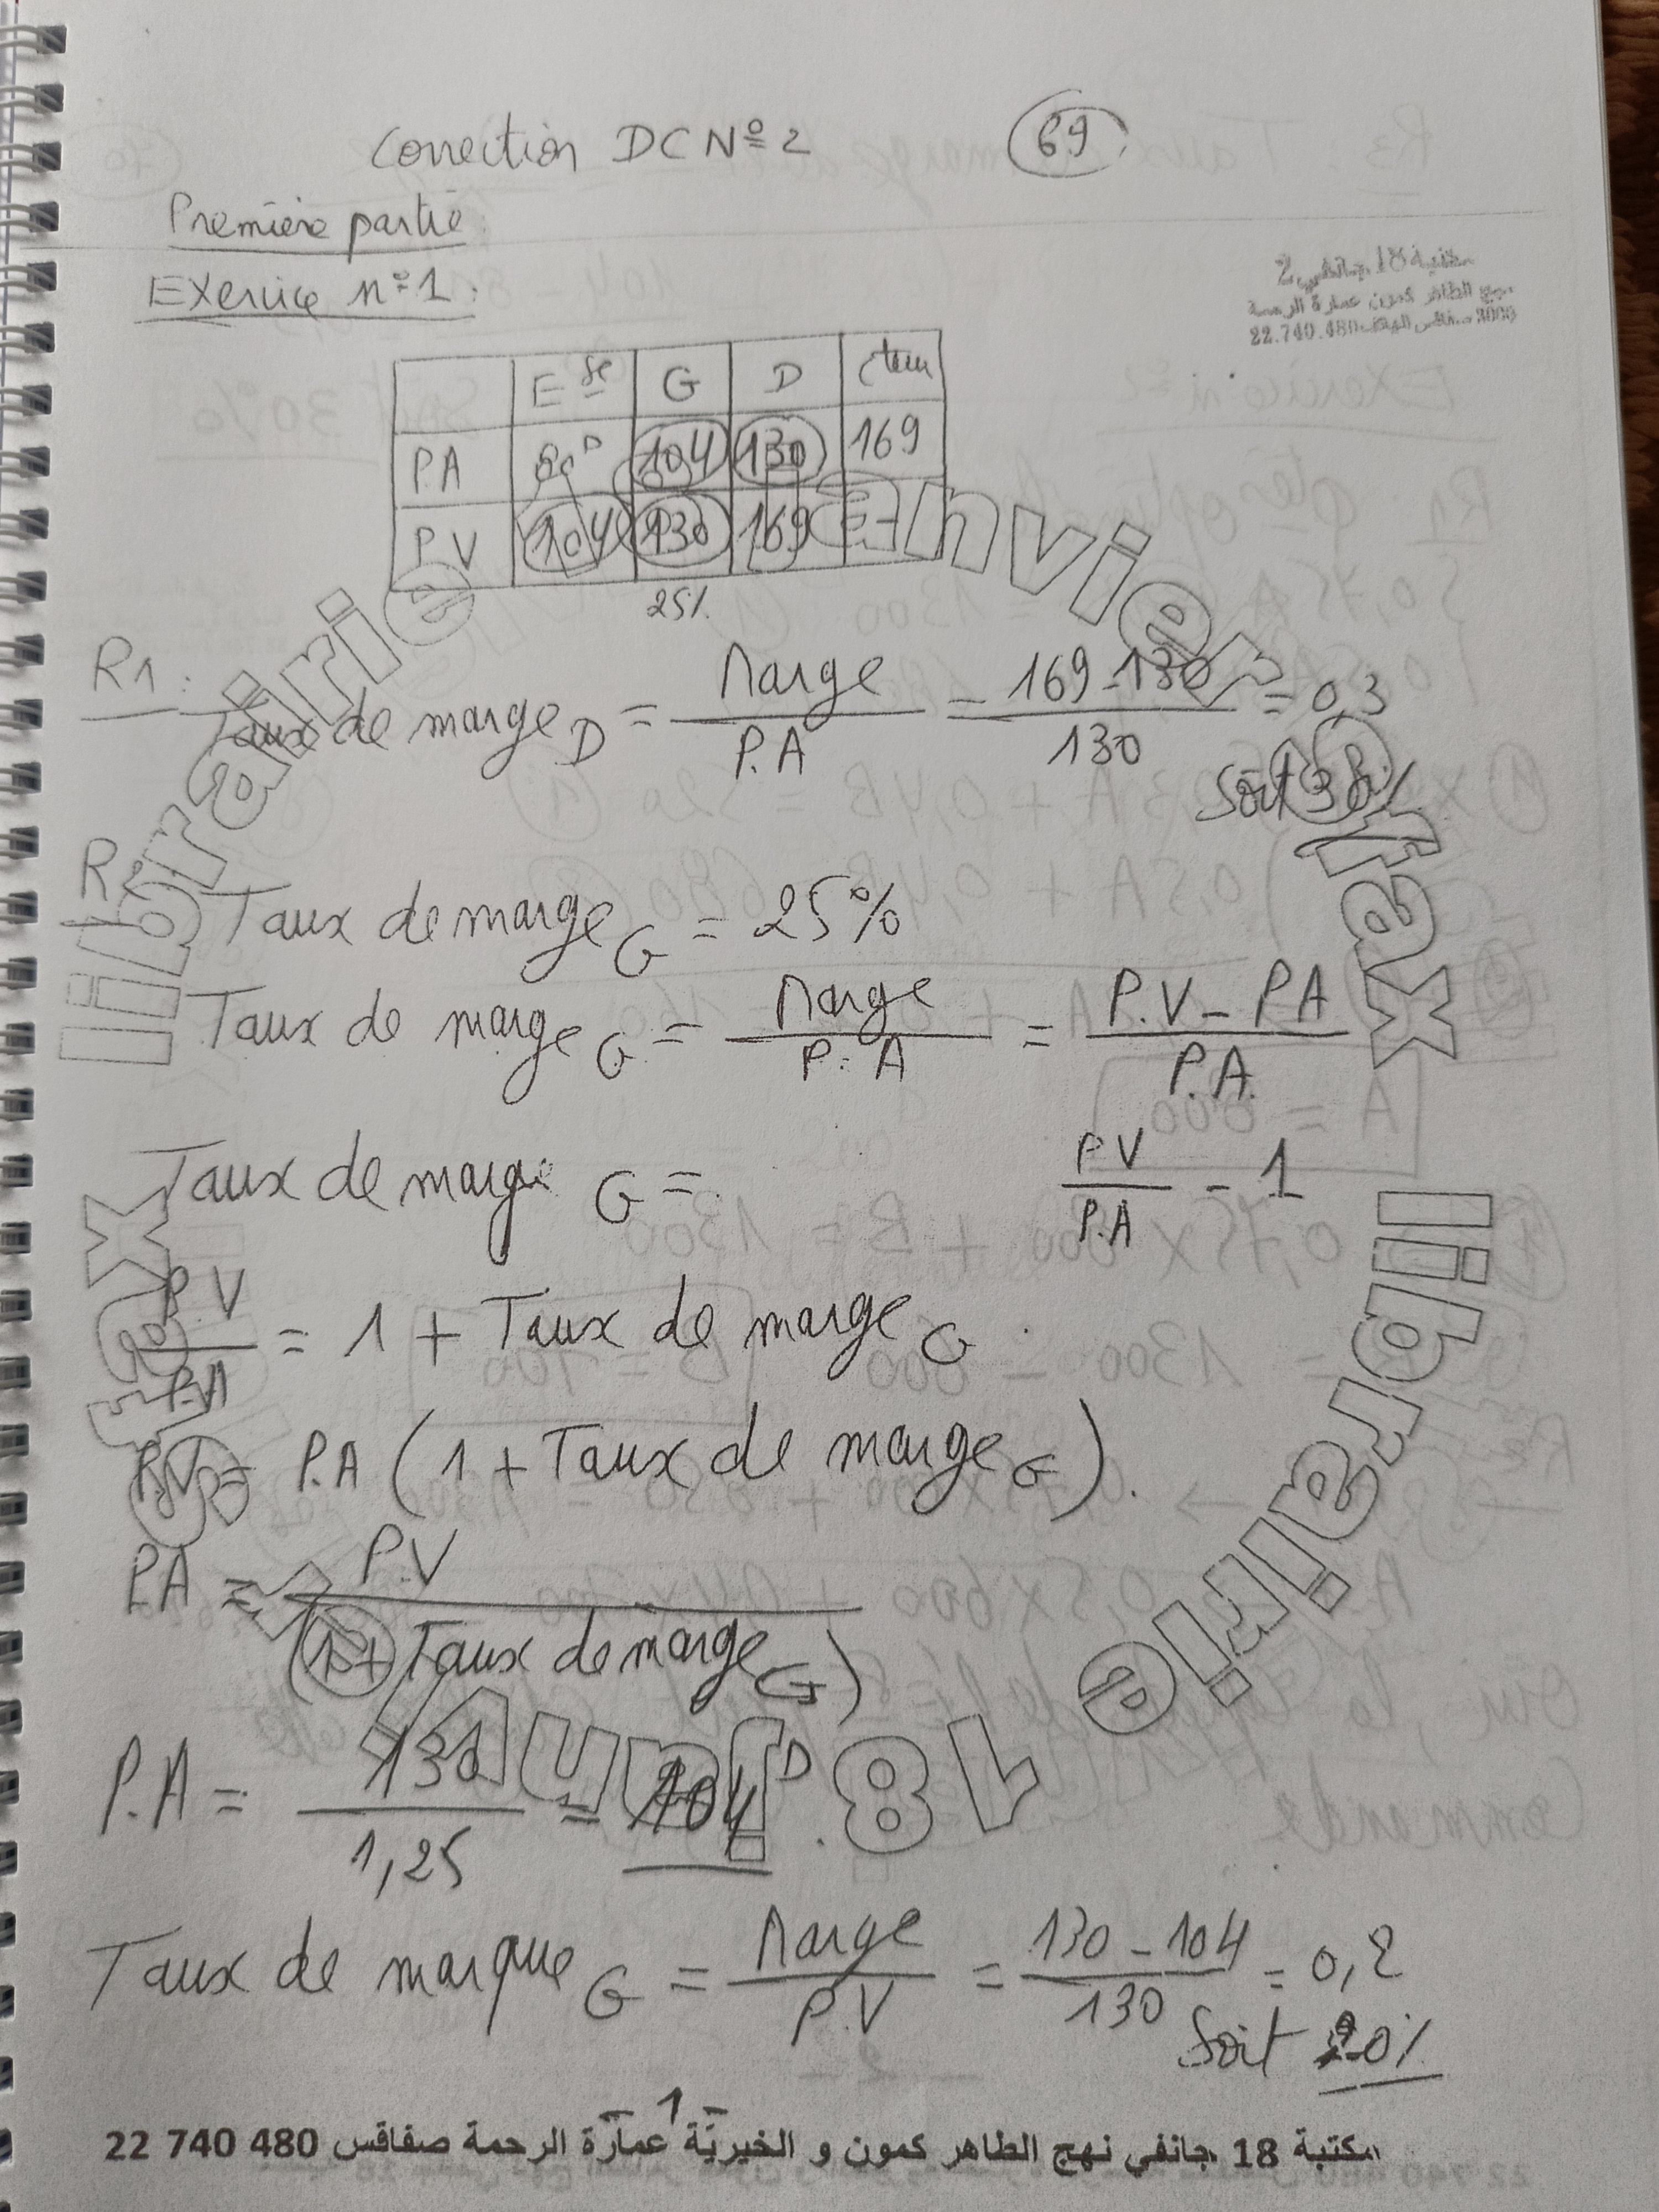 Correction DC Nº 2
69
Première partie
Exercice nº1:
مكتبة 18 جانفي 2
نهج الطاهر كمون عمارة الرحمة
3000 صفاقس الهاتف 22.740.480
E se G D cteur
P.A 80 D 104 130 169
P.V 104 130 169
25%
R1:
Taux de marge D = Marge / P.A = 169 - 130 / 130 = 0,3
Soit 30%
R2
Taux de marge G = 25%
Taux de marge G = Marge / P.A = P.V - PA / P.A.
Taux de marge G = PV / P.A - 1
P.V / P.A = 1 + Taux de marge G
P.V = P.A (1 + Taux de marge G).
P.A = P.V / (1 + Taux de marge G)
P.A = 130 / 1,25 = 104 D.
Taux de marque G = Marge / P.V = 130 - 104 / 130 = 0,2
Soit 20%
- 1 -
مكتبة 18 جانفي نهج الطاهر كمون و الخيريّة عمارة الرحمة صفاقس 480 740 22
librairie 18 janvier sfax
librairie 18 janvier sfax